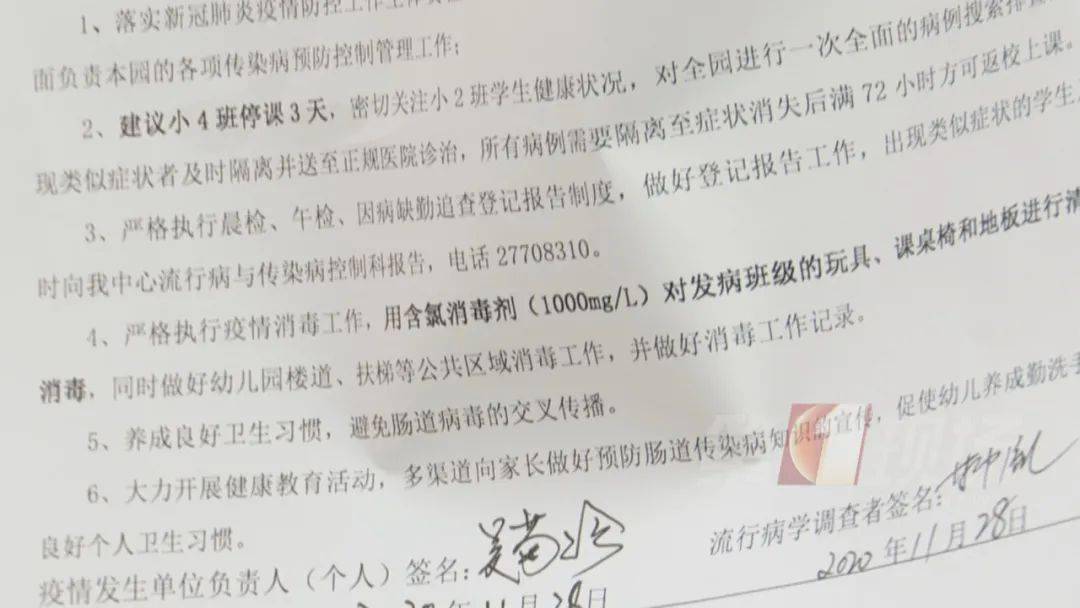 1、落实新冠肺炎疫情防控工作主体责任
面负责本园的各项传染病预防控制管理工作；
2、建议小4班停课3天，密切关注小2班学生健康状况，对全园进行一次全面的病例搜索排查
现类似症状者及时隔离并送至正规医院诊治，所有病例需要隔离至症状消失后满72小时方可返校上课。
3、严格执行晨检、午检、因病缺勤追查登记报告制度，做好登记报告工作，出现类似症状的学生
时向我中心流行病与传染病控制科报告，电话27708310。
4、严格执行疫情消毒工作，用含氯消毒剂（1000mg/L）对发病班级的玩具、课桌椅和地板进行清
消毒，同时做好幼儿园楼道、扶梯等公共区域消毒工作，并做好消毒工作记录。
5、养成良好卫生习惯，避免肠道病毒的交叉传播。
6、大力开展健康教育活动，多渠道向家长做好预防肠道传染病知识的宣传，促使幼儿养成勤洗手
良好个人卫生习惯。
疫情发生单位负责人（个人）签名：
流行病学调查者签名：
2020年11月28日
年11月28日